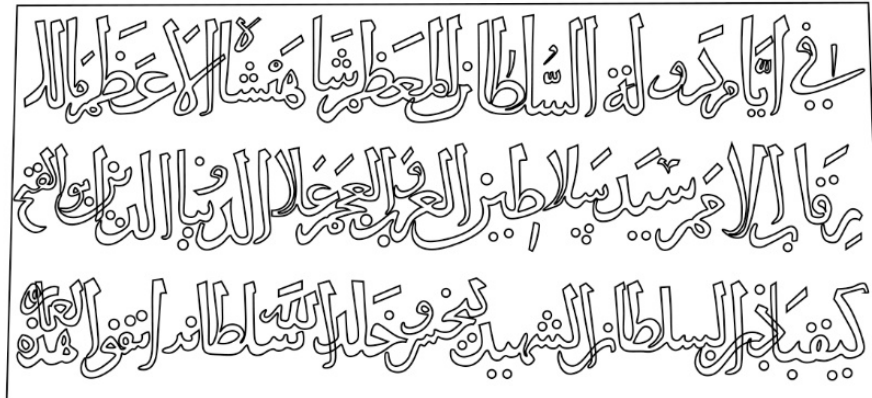 في ايام دولة السلطان المعظم شاهنشاه الاعظم مالك
رقاب الامم سيد سلاطين العرب والعجم علا الدنيا والدين ابو الفتح
كيقباذ بن السلطان الشهيد كيخسرو خلد الله سلطانه اتفق العمارة هذه